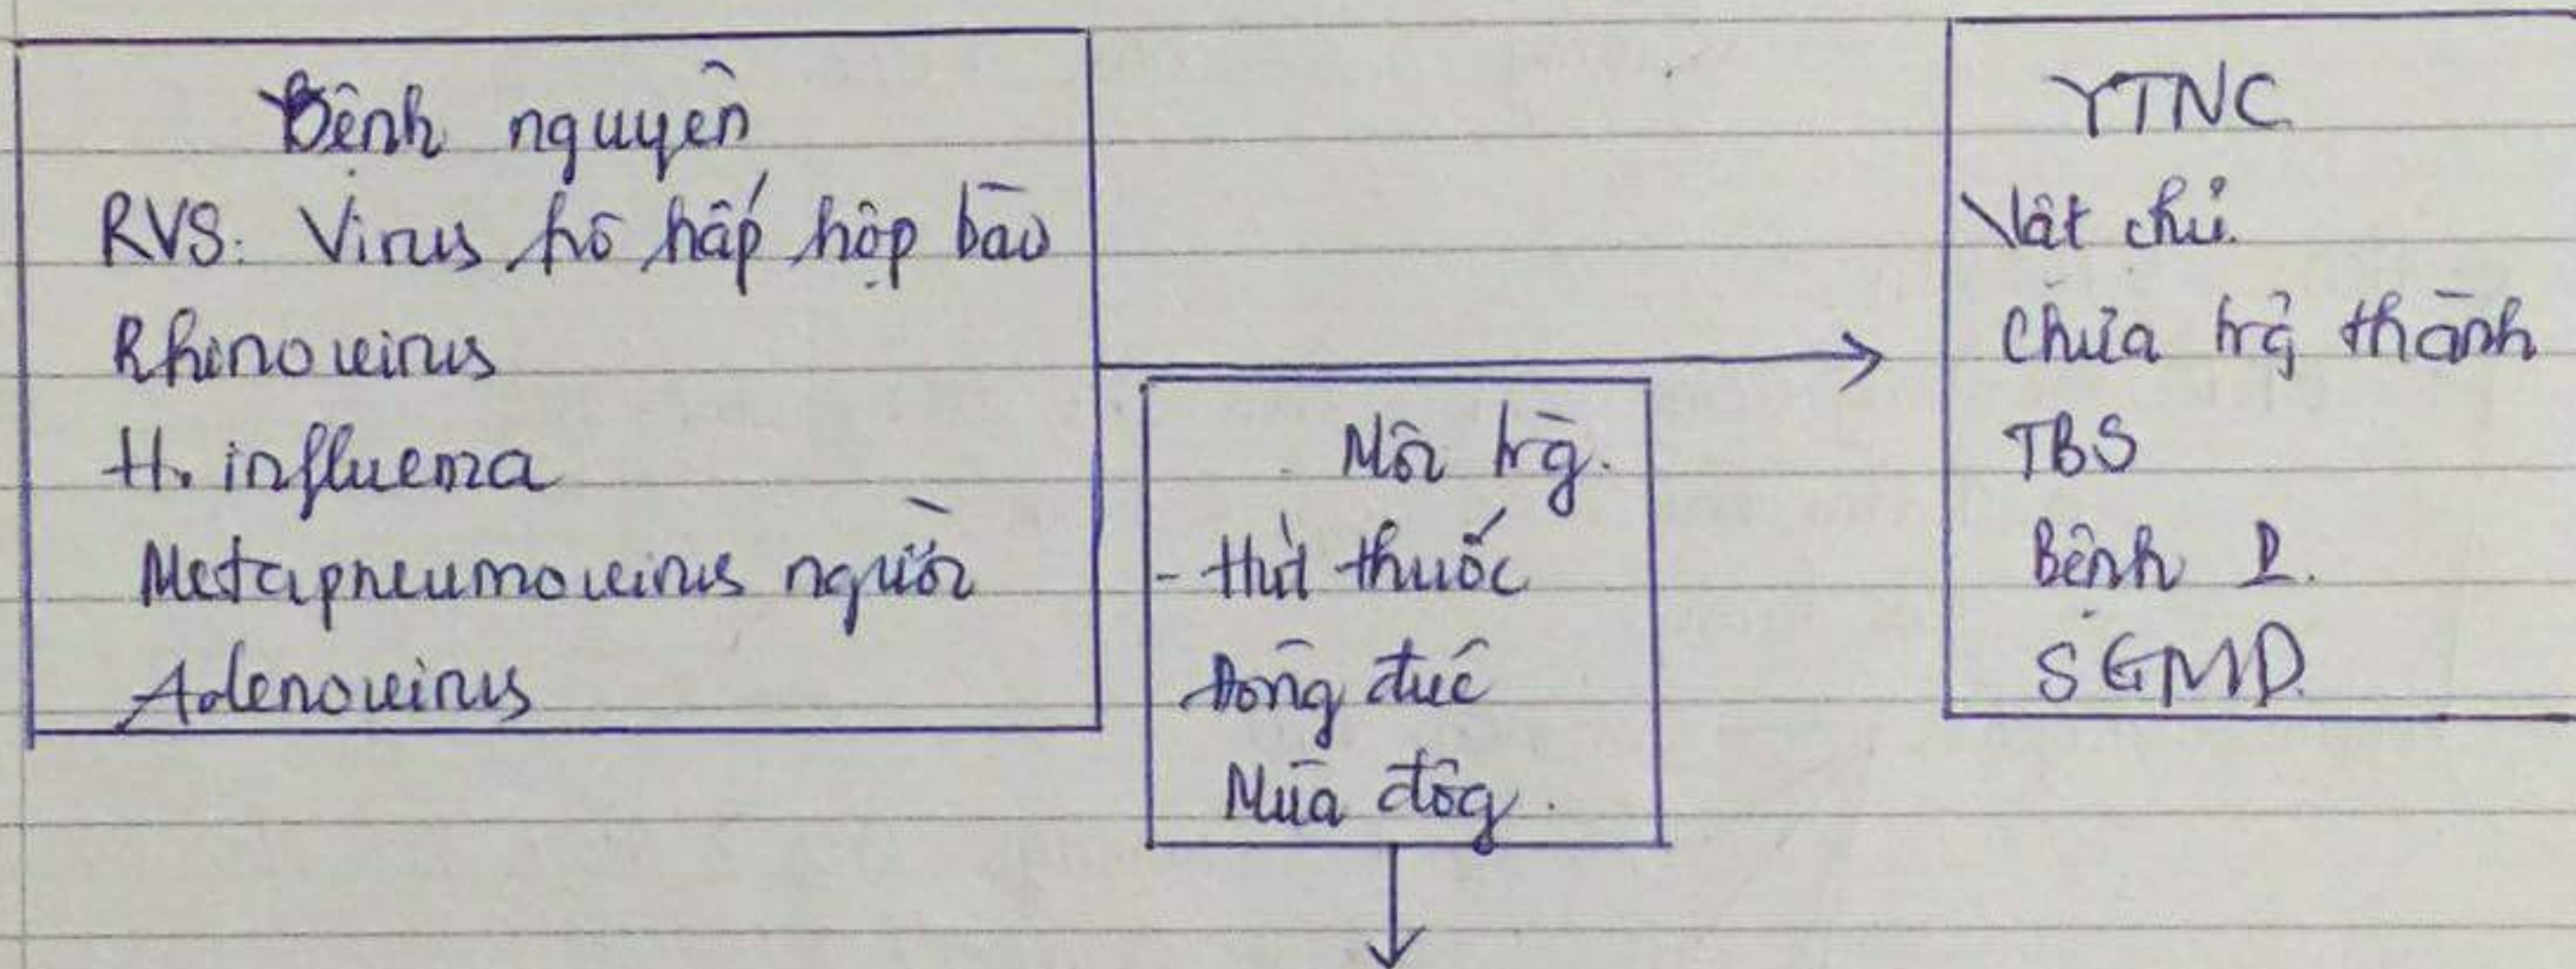 Bệnh nguyên
RVS: Virus hô hấp hợp bào
Rhinovirus
H. influenza
Metapneumovirus người
Adenovirus
Môi trg.
- Hút thuốc
Đông đúc
Mùa đôg.
YTNC
Vật chủ.
Chưa trg thành
TBS
Bệnh
SGMD